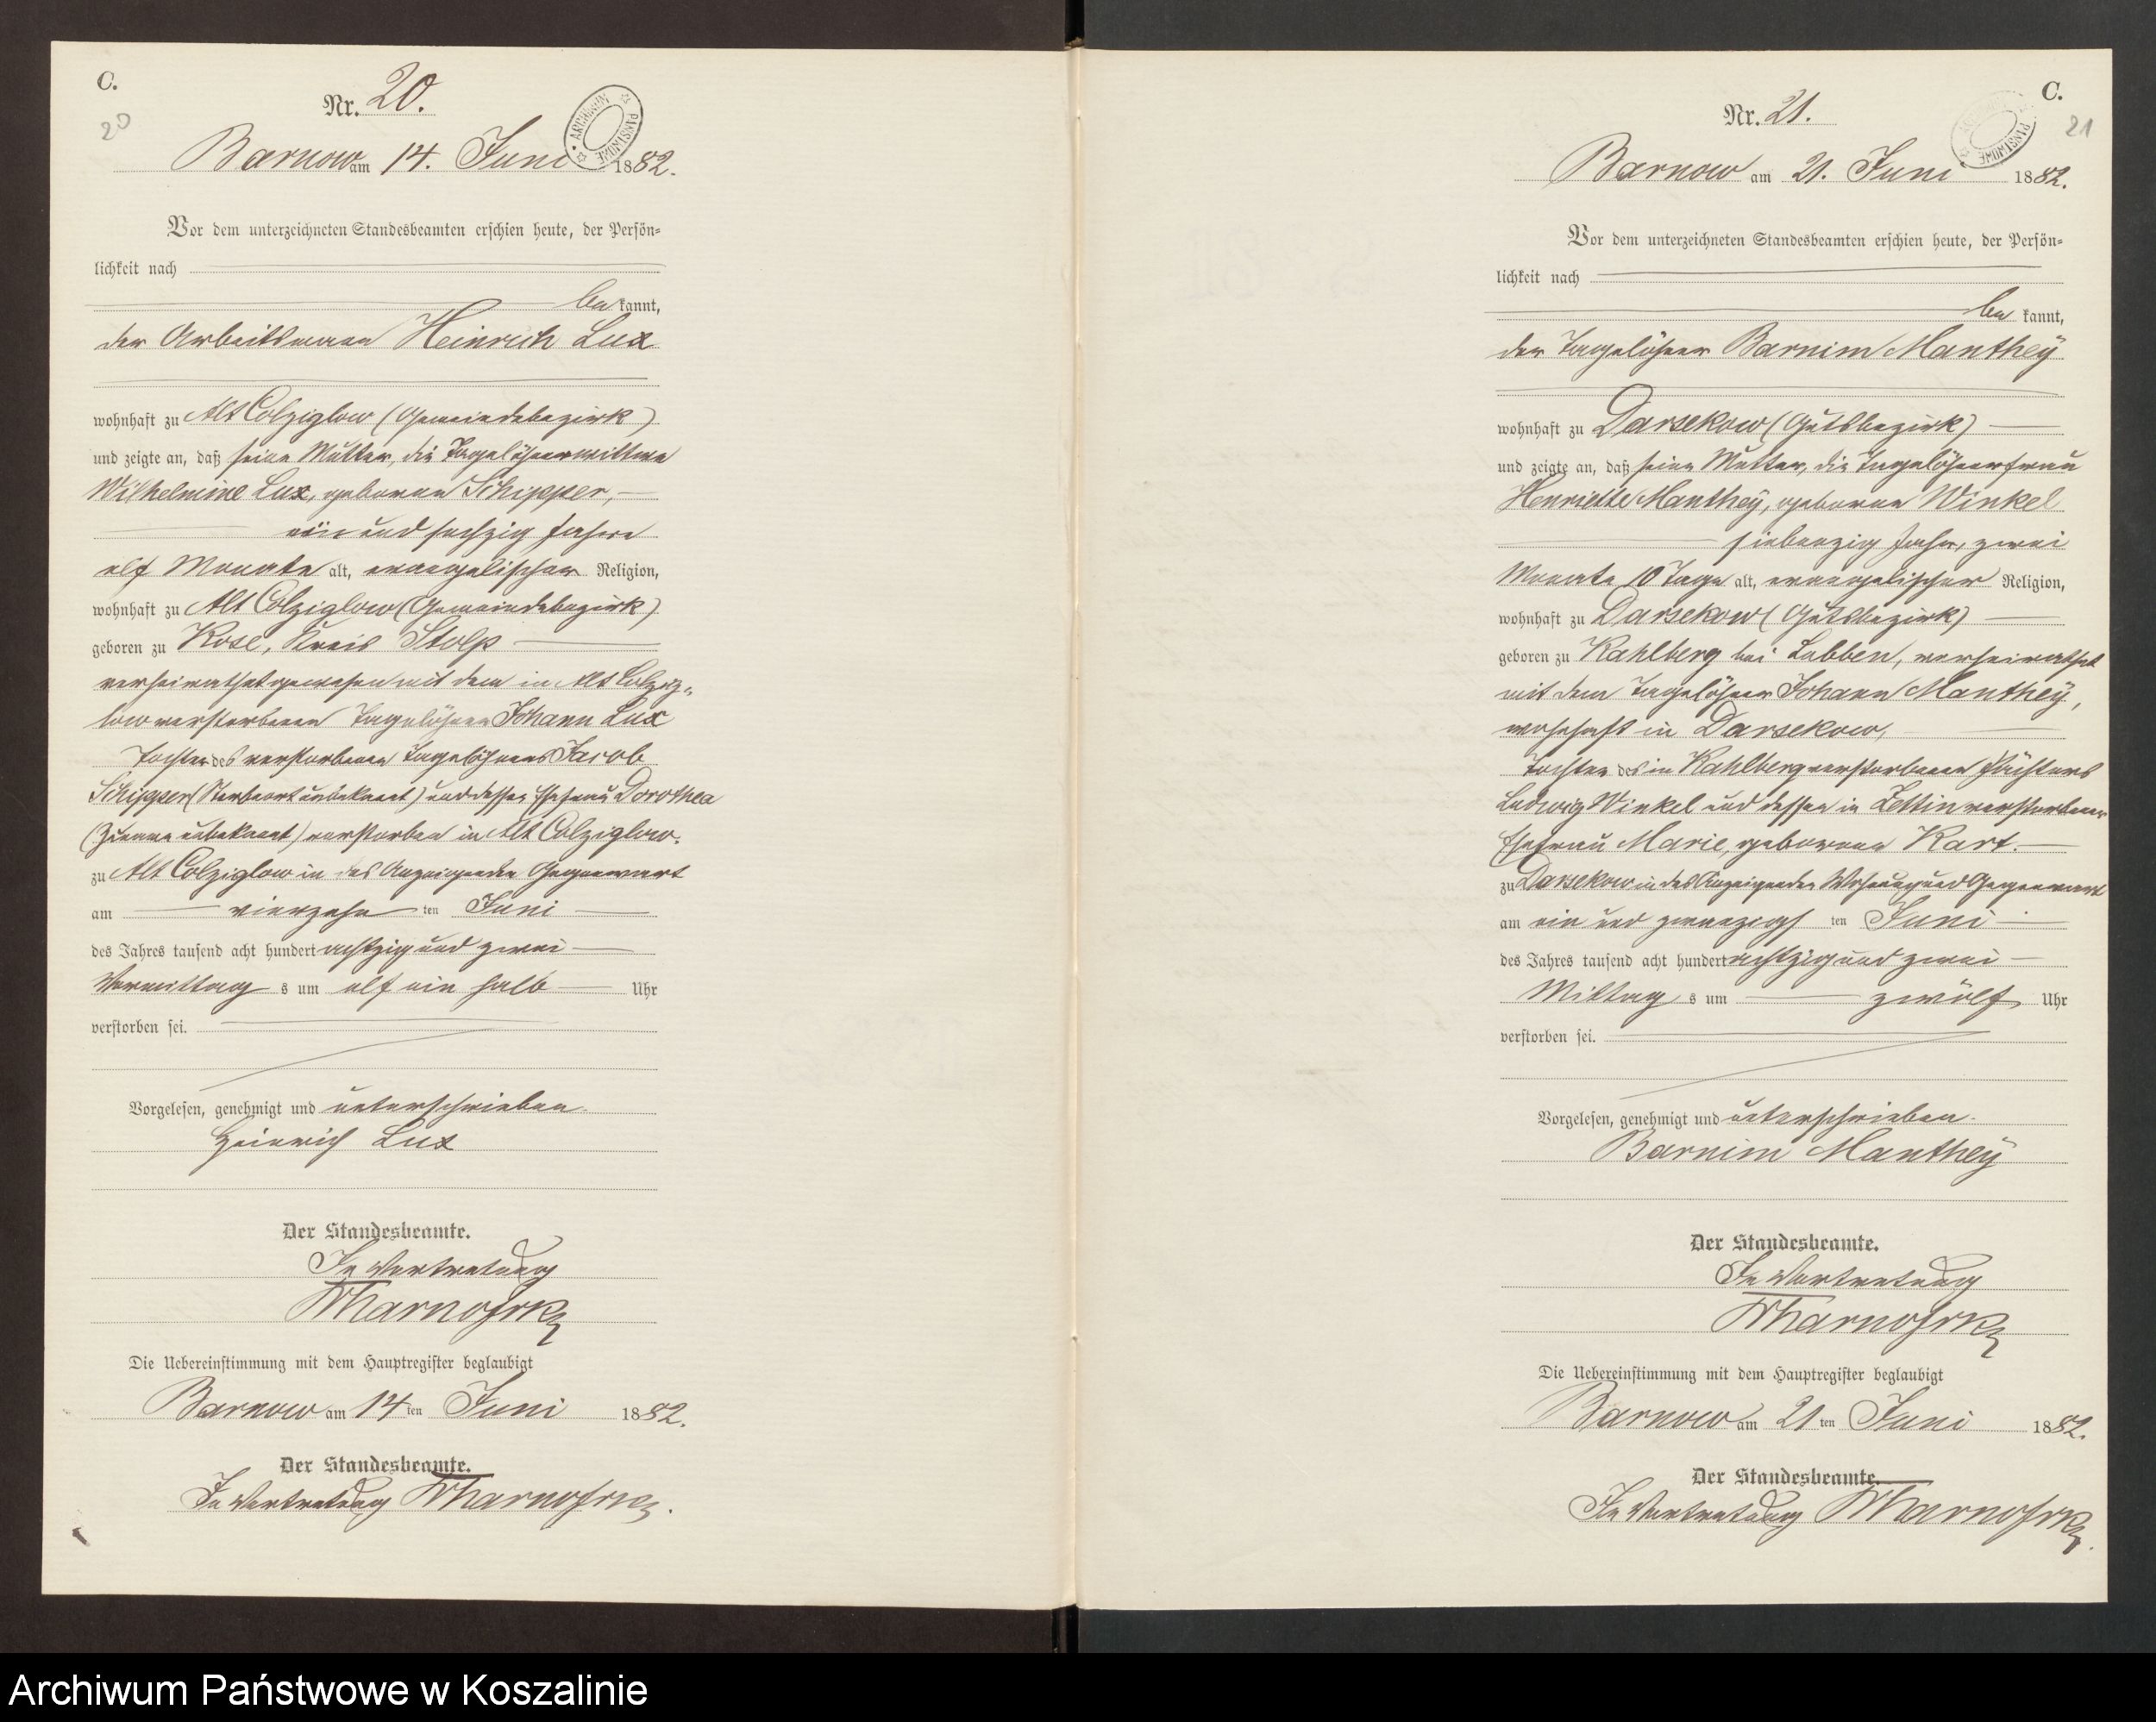 C.
20
Nr. 20.
ARCHIWUM PAŃSTWOWE
Barnow am 14. Juni 1882.
Vor dem unterzeichneten Standesbeamten erschien heute, der Persön-
lichkeit nach
be kannt,
der Arbeitsmann Heinrich Lux
wohnhaft zu Alt Colziglow (Gemeindebezirk)
und zeigte an, daß seine Mutter, die Tagelöhnerwittwe
Wilhelmine Lux, geborene Schipper,
ein und sechzig Jahre
elf Monate alt, evangelischer Religion,
wohnhaft zu Alt Colziglow (Gemeindebezirk)
geboren zu Kose, Kreis Stolp
verheirathet gewesen mit dem in Alt Colzig-
low verstorbenen Tagelöhner Johann Lux
Tochter des verstorbenen Tagelöhners Jacob
Schipper (Sterbeort unbekannt) und dessen Ehefrau Dorothea
(Zuname unbekannt) verstorben in Alt Colziglow.
zu Alt Colziglow in des Anzeigenden Gegenwart
am vierzehn ten Juni
des Jahres tausend acht hundert achtzig und zwei
Vormittag s um elf ein halb Uhr
verstorben sei.
Vorgelesen, genehmigt und unterschrieben.
Heinrich Lux
Der Standesbeamte.
In Vertretung
Die Uebereinstimmung mit dem Hauptregister beglaubigt
Barnow am 14 ten Juni 1882.
Der Standesbeamte.
In Vertretung
C.
21
Nr. 21.
Barnow am 21. Juni 1882.
Vor dem unterzeichneten Standesbeamten erschien heute, der Persön-
lichkeit nach
be kannt,
der Tagelöhner Barnim Manthey
wohnhaft zu Darsekow (Gutsbezirk)
und zeigte an, daß seine Mutter, die Tagelöhnerfrau
Henriette Manthey, geborene Winkel
siebenzig Jahre, zwei
Monate 10 Tage alt, evangelischer Religion,
wohnhaft zu Darsekow (Gutsbezirk)
geboren zu Kahlberg bei Labben, verheirathet
mit dem Tagelöhner Johann Manthey,
wohnhaft in Darsekow,
Tochter des in Kahlberg verstorbenen
Ludwig Winkel und dessen in Zettin verstorbenen
Ehefrau Marie, geborene Karf.
zu Darsekow in des Anzeigenden Wohnung und Gegenwart
am ein und zwanzigs ten Juni
des Jahres tausend acht hundert achtzig und zwei
Mittag s um zwölf Uhr
verstorben sei.
Vorgelesen, genehmigt und unterschrieben.
Barnim Manthey
Der Standesbeamte.
In Vertretung
Die Uebereinstimmung mit dem Hauptregister beglaubigt
Barnow am 21 ten Juni 1882.
Der Standesbeamte.
In Vertretung
Archiwum Państwowe w Koszalinie